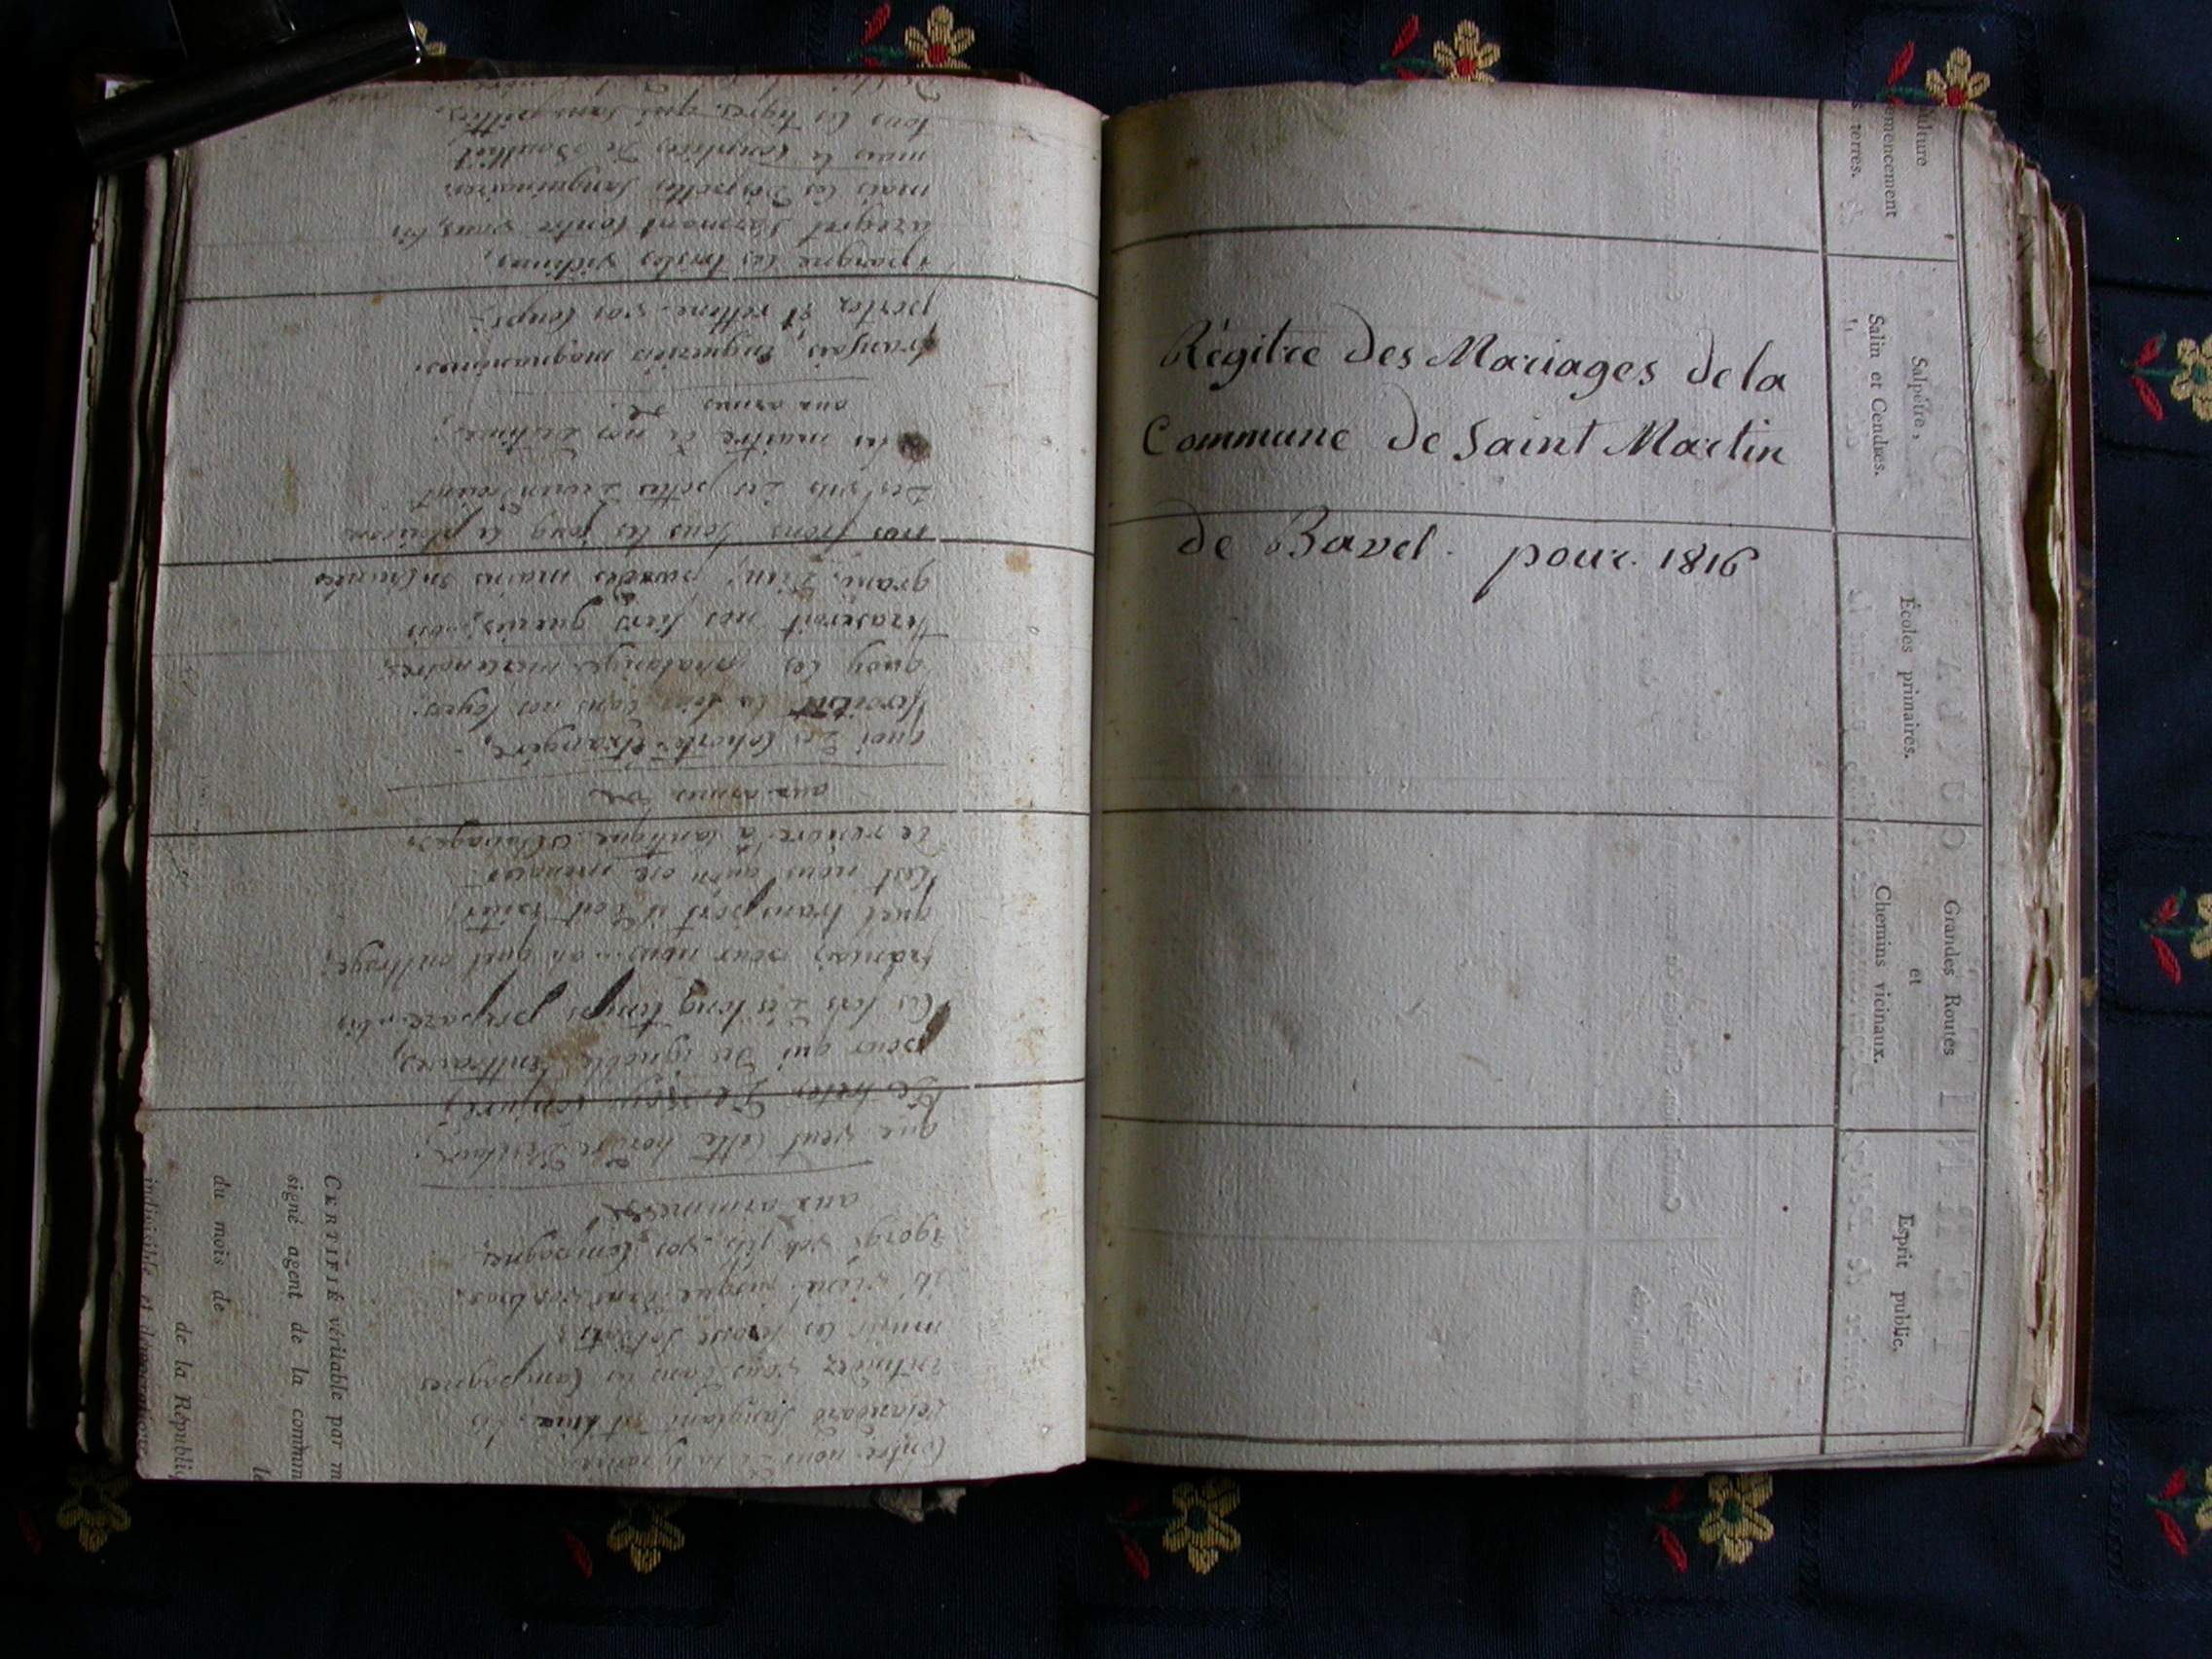 Contre nous de la tyranie,
l'etandard sanglant est levé. bis
entendez vous dans les campagnes
mugir les feroce soldats;
il viene jusque dans vos bras.
egorgé vos fils, vos compagnes,
aux armmes &
que veut cette horde d'esclaves,
de traites de roy conjurés
pour qui des ignoble enttraves,
Ces fers des long temps preparé. bis
francais, pour nous, ah quel outtrage,
quel transport il doit exciter
C'est nous qu'on ose menacer
de rendre à lantique esclavage.
aux armes &
quoi des cohorte etrangére,
feroient la loi dans nos foyers;
quoy ces phalanges mercenaires
teraseroit nos fiers gueriers; bis
grand. dieu, par des mains enchainés
nos fronts sous les joug se ploiroien
des vils des pottes deviendroient
les maitre de nos destinés;
aux armes &
français, en gueriers magnanimes.
portez et rettene vos coups;
epargne ces tristes victimes,
aregret sarmant contre nous, bis
mais ces despottes sanguinaires
mais le complices de Bouillié
tous les tigres qui sans pittiés
CERTIFIÉ véritable par m
signé agent de la commun
du mois de
de la Républiq
indivisible et démocratique
Régitre des Mariages de la
Commune de Saint Martin
de Bavel. pour 1816
ulture
emencement
s terres.
Salpêtre,
Salin et Cendres.
Écoles primaires.
Grandes Routes
et
Chemins vicinaux.
Esprit public.